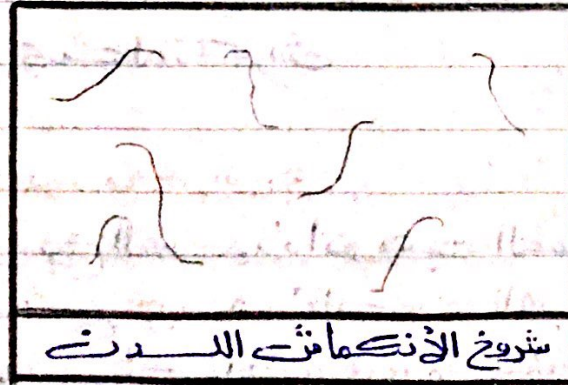 شروخ الأنكماش اللدن